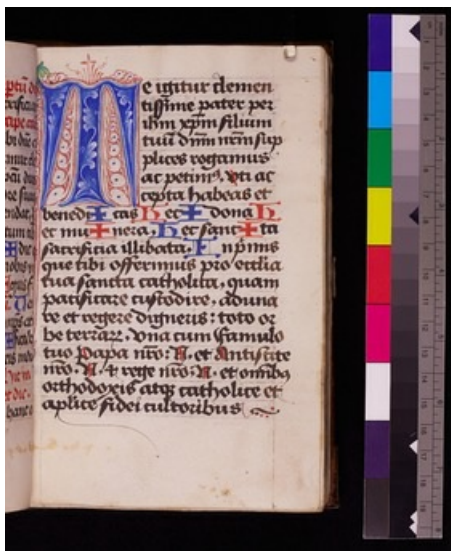 Te igitur clemen
tissime pater per
ihm xpm filium
tuū dnm nrm sup
plices rogamus
ac petim⁹. vti ac
cepta habeas et
benedi✠cas h ec ✠ dona h
ec mu✠nera. h ec sanc✠ta
sacrificia illibata. Inpmis
que tibi offerimus pro ecclia
tua sancta catholica, quam
pacificare custodire, aduna
re et regere digneris: toto or
be terraꝝ. vna cum famulo
tuo Papa nrō: N. et Antistite
nrō. N. & rege nrō. N. et omībꝫ
orthodoxis atqꝫ catholice et
aplice fidei cultoribus